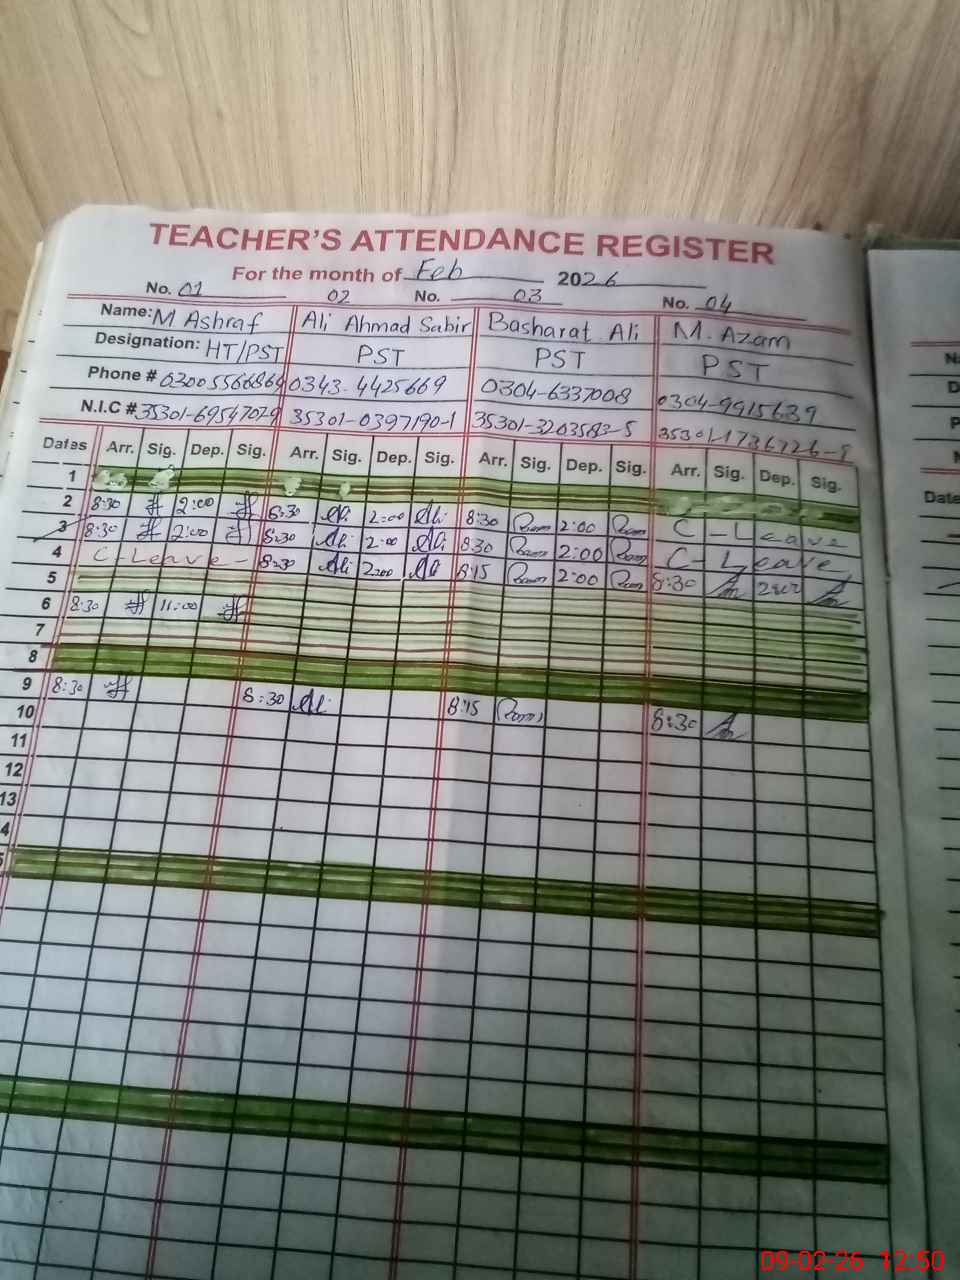 TEACHER'S ATTENDANCE REGISTER
For the month of Feb 2026
No. 01 02 No. 03 No. 04
Name: M Ashraf Ali Ahmad Sabir Basharat Ali M. Azam
Designation: HT/PST PST PST PST
Phone # 03005566864 0343-4425669 0304-6337008 0304-9915639
N.I.C # 35301-6954702 35301-0397190-1 35301-3203583-5 35301-1736726-9
Dates Arr. Sig. Dep. Sig. Arr. Sig. Dep. Sig. Arr. Sig. Dep. Sig. Arr. Sig. Dep. Sig.
1
2 8:30 2:00 8:30 Ali 2:00 Ali 8:30 2:00 C-Leave
3 8:30 2:00 8:30 Ali 2:00 Ali 8:30 2:00 C-Leave
4 C-Leave- 8:30 Ali 2:00 Ali 8:15 2:00 8:30 2:00
5
6 8:30 11:00
7
8
9 8:30 8:30 Ali 8:15 8:30
10
11
12
13
4
Date
09-02-26 12:50